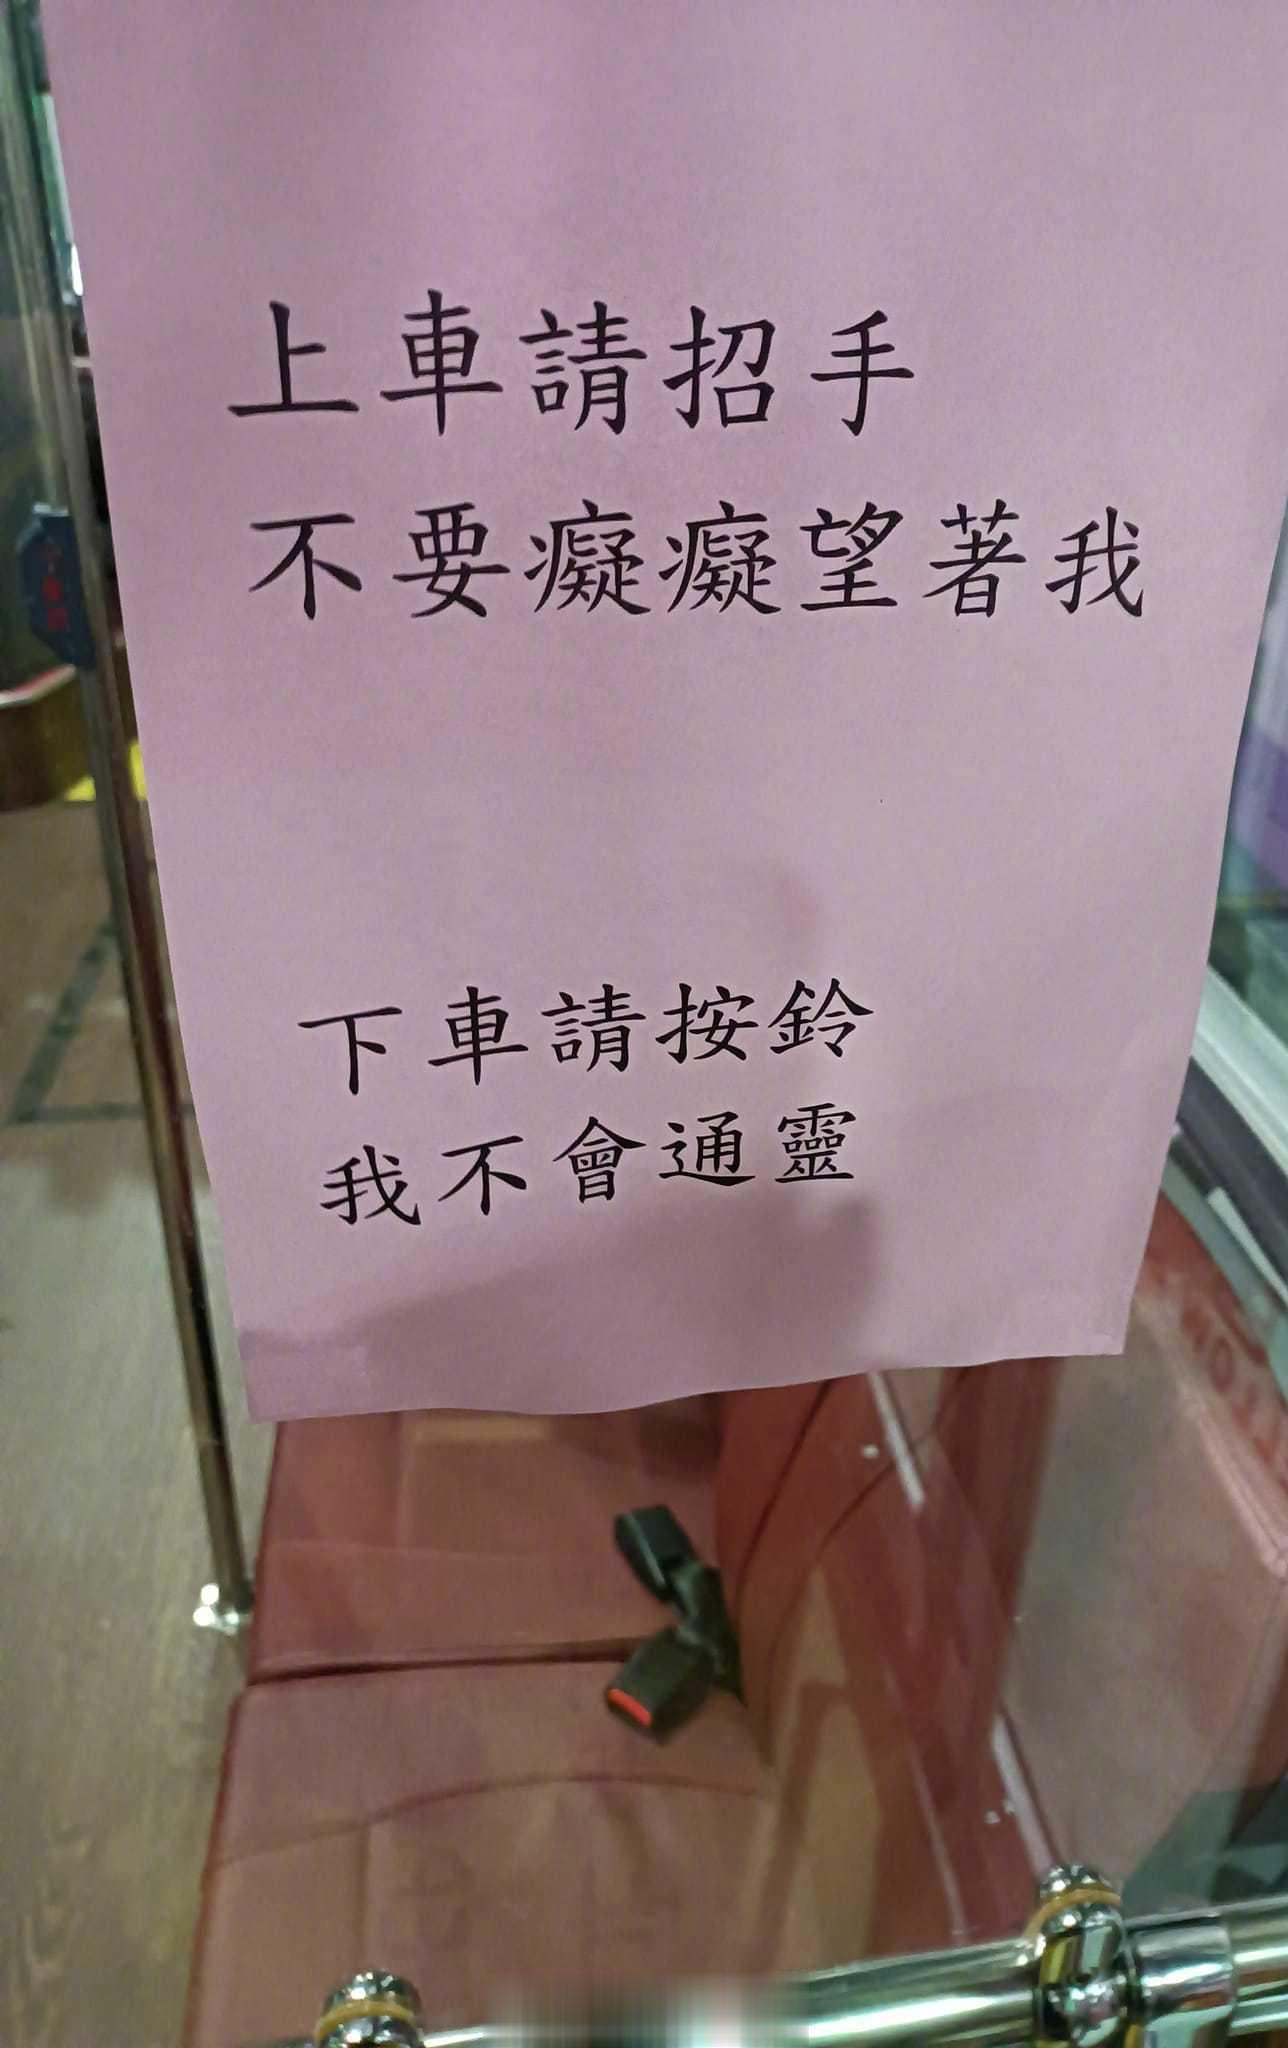 上車請招手
不要癡癡望著我
下車請按鈴
我不會通靈